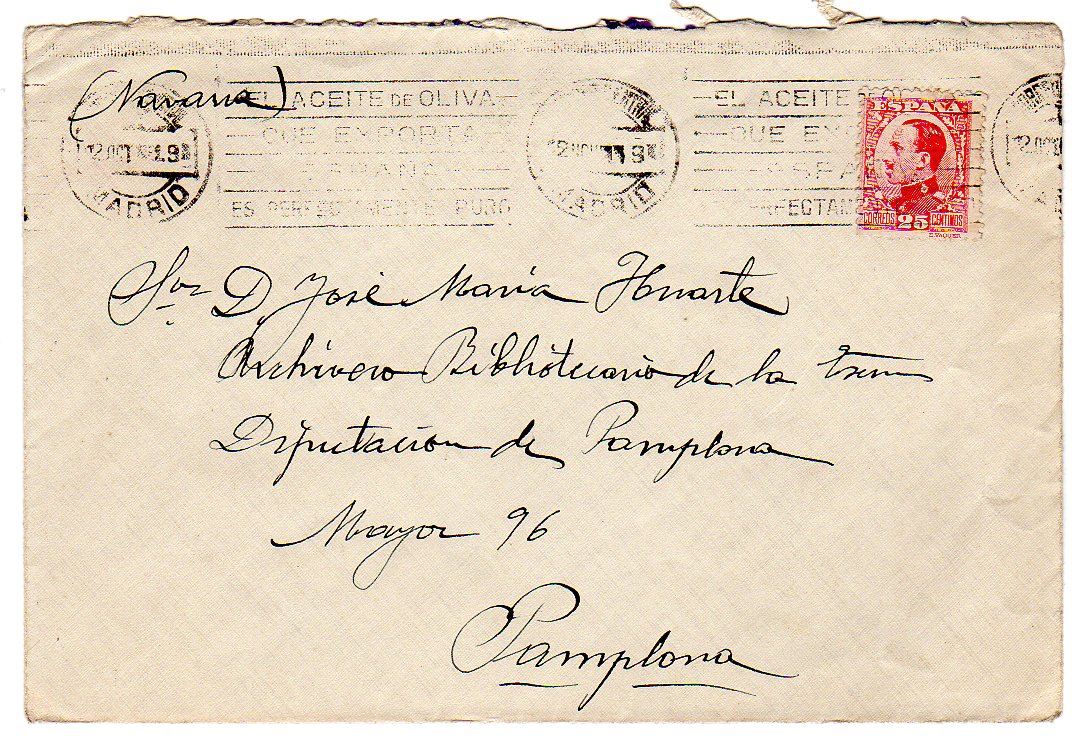 (Navarra)
EL ACEITE DE OLIVA
QUE EXPORTA
ESPAÑA
ES PERFECTAMENTE PURO
MADRID
12 OCT
MADRID
EL ACEITE DE
QUE EXPO
ESPA
FECTAM
12 OCT
ESPAÑA
CORREOS 25 CENTIMOS
E. VAQUER
Sor D. José María Huarte
Archivero Bibliotecario de la Excma
Diputación de Pamplona
Mayor 96
Pamplona